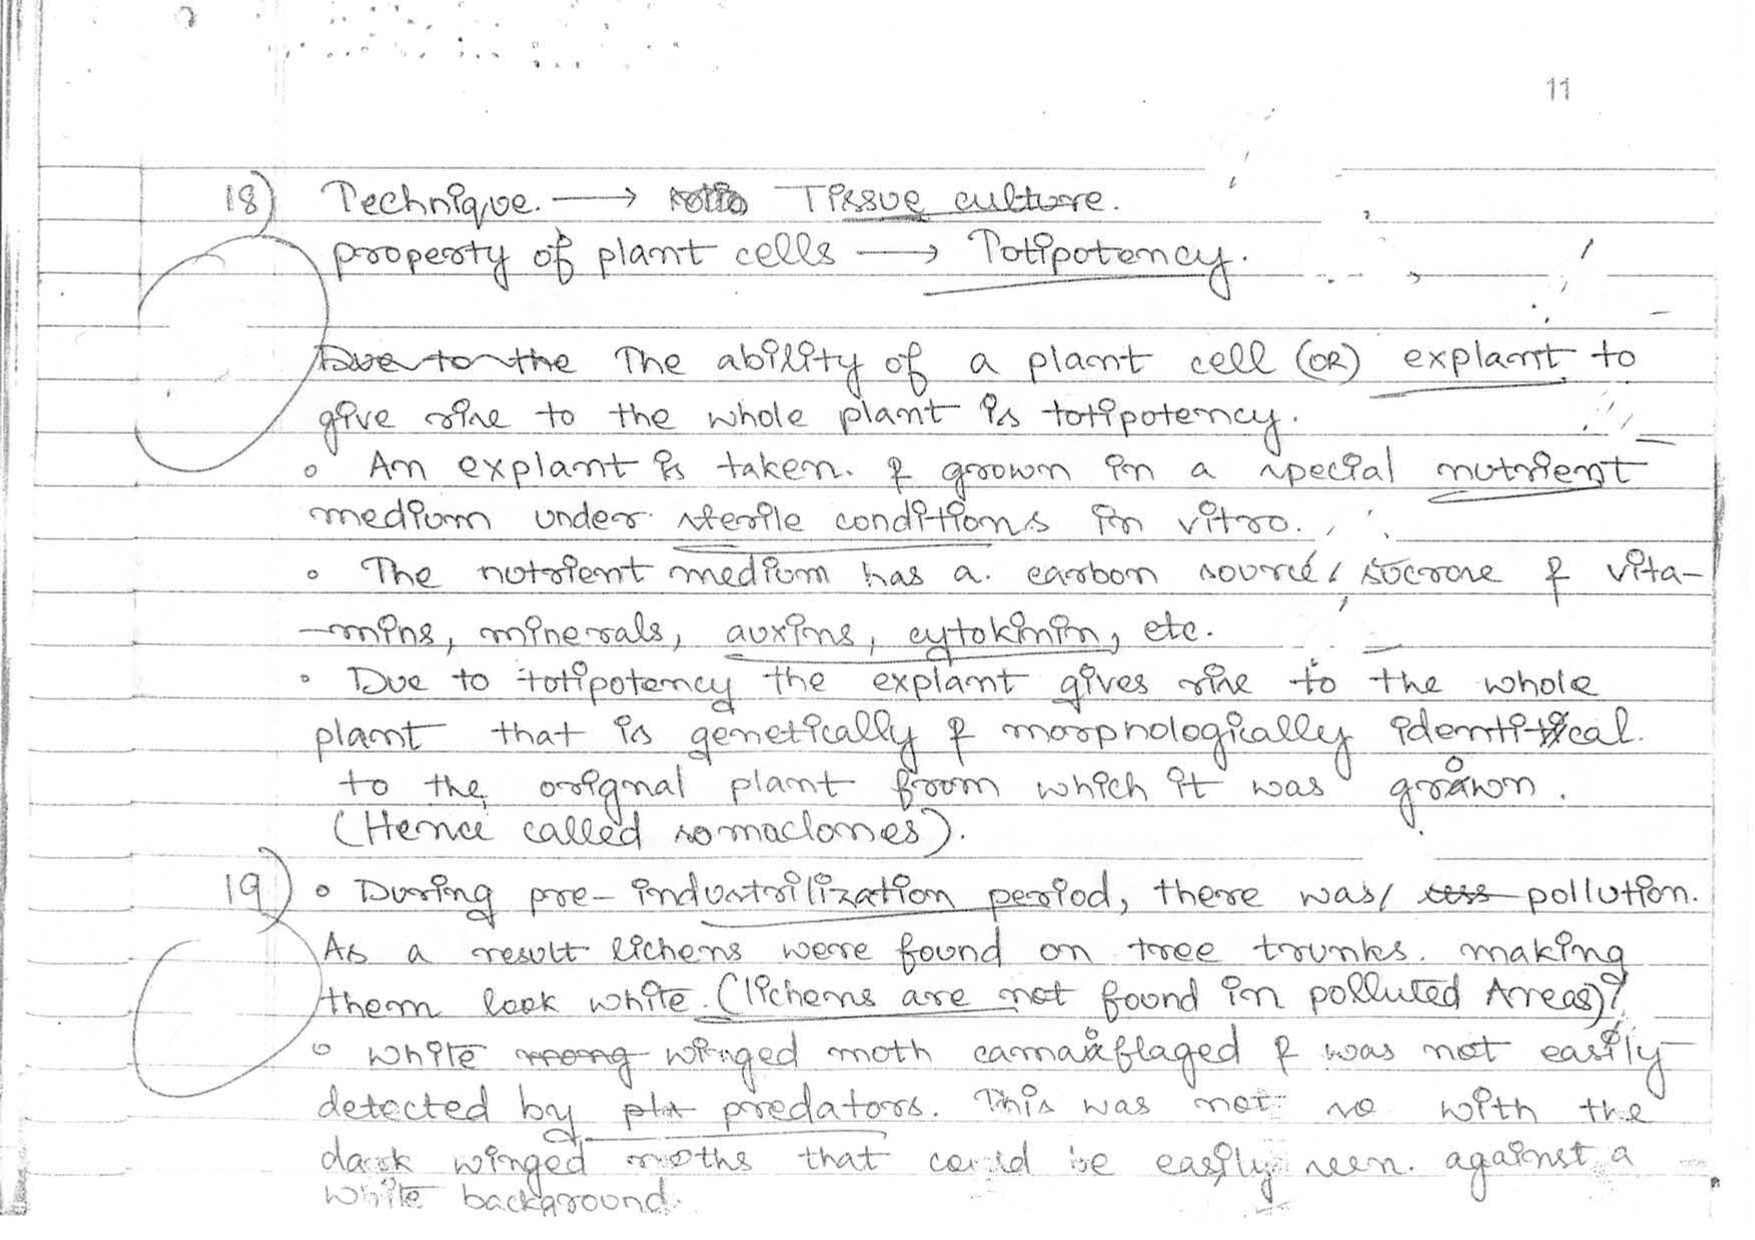 11
18) Technique. → Tissue culture.
property of plant cells → Totipotency.
Due to the The ability of a plant cell (OR) explant to
give rise to the whole plant is totipotency.
◦ An explant is taken. & grown in a special nutrient
medium under sterile conditions in vitro.
◦ The nutrient medium has a carbon source, sucrose & vita-
-mins, minerals, auxins, cytokinin, etc.
◦ Due to totipotency the explant gives rise to the whole
plant that is genetically & morphologically identical.
to the orignal plant from which it was grown.
(Hence called somaclones).
19) ◦ During pre-industrilization period, there was less pollution.
As a result lichens were found on tree trunks. making
them look white. (lichens are not found in polluted Areas)
◦ White winged moth camaoflaged & was not easily
detected by predators. This was not so with the
dark winged moths that could be easily seen. against a
white background.